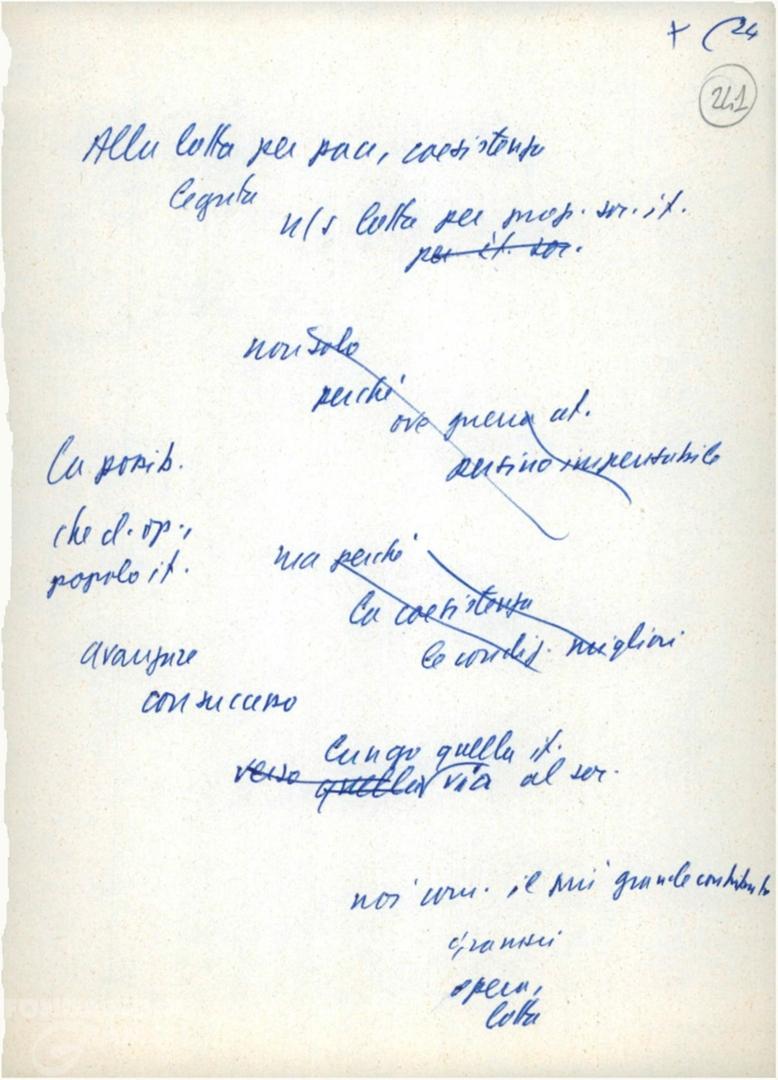 + (24
241
Alla lotta per pace, coesistenza
legata
n/s lotta per prosp. soc. it.
per it. soc.
non solo
perché
ove guerra at.
persino impensabile
La possib.
che cl. op.,
popolo it.
ma perché
la coesistenza
le condiz. migliori
avanzare
con successo
lungo quella it.
verso quella via al soc.
noi com. il più grande contributo
Gramsci
opera,
lotta